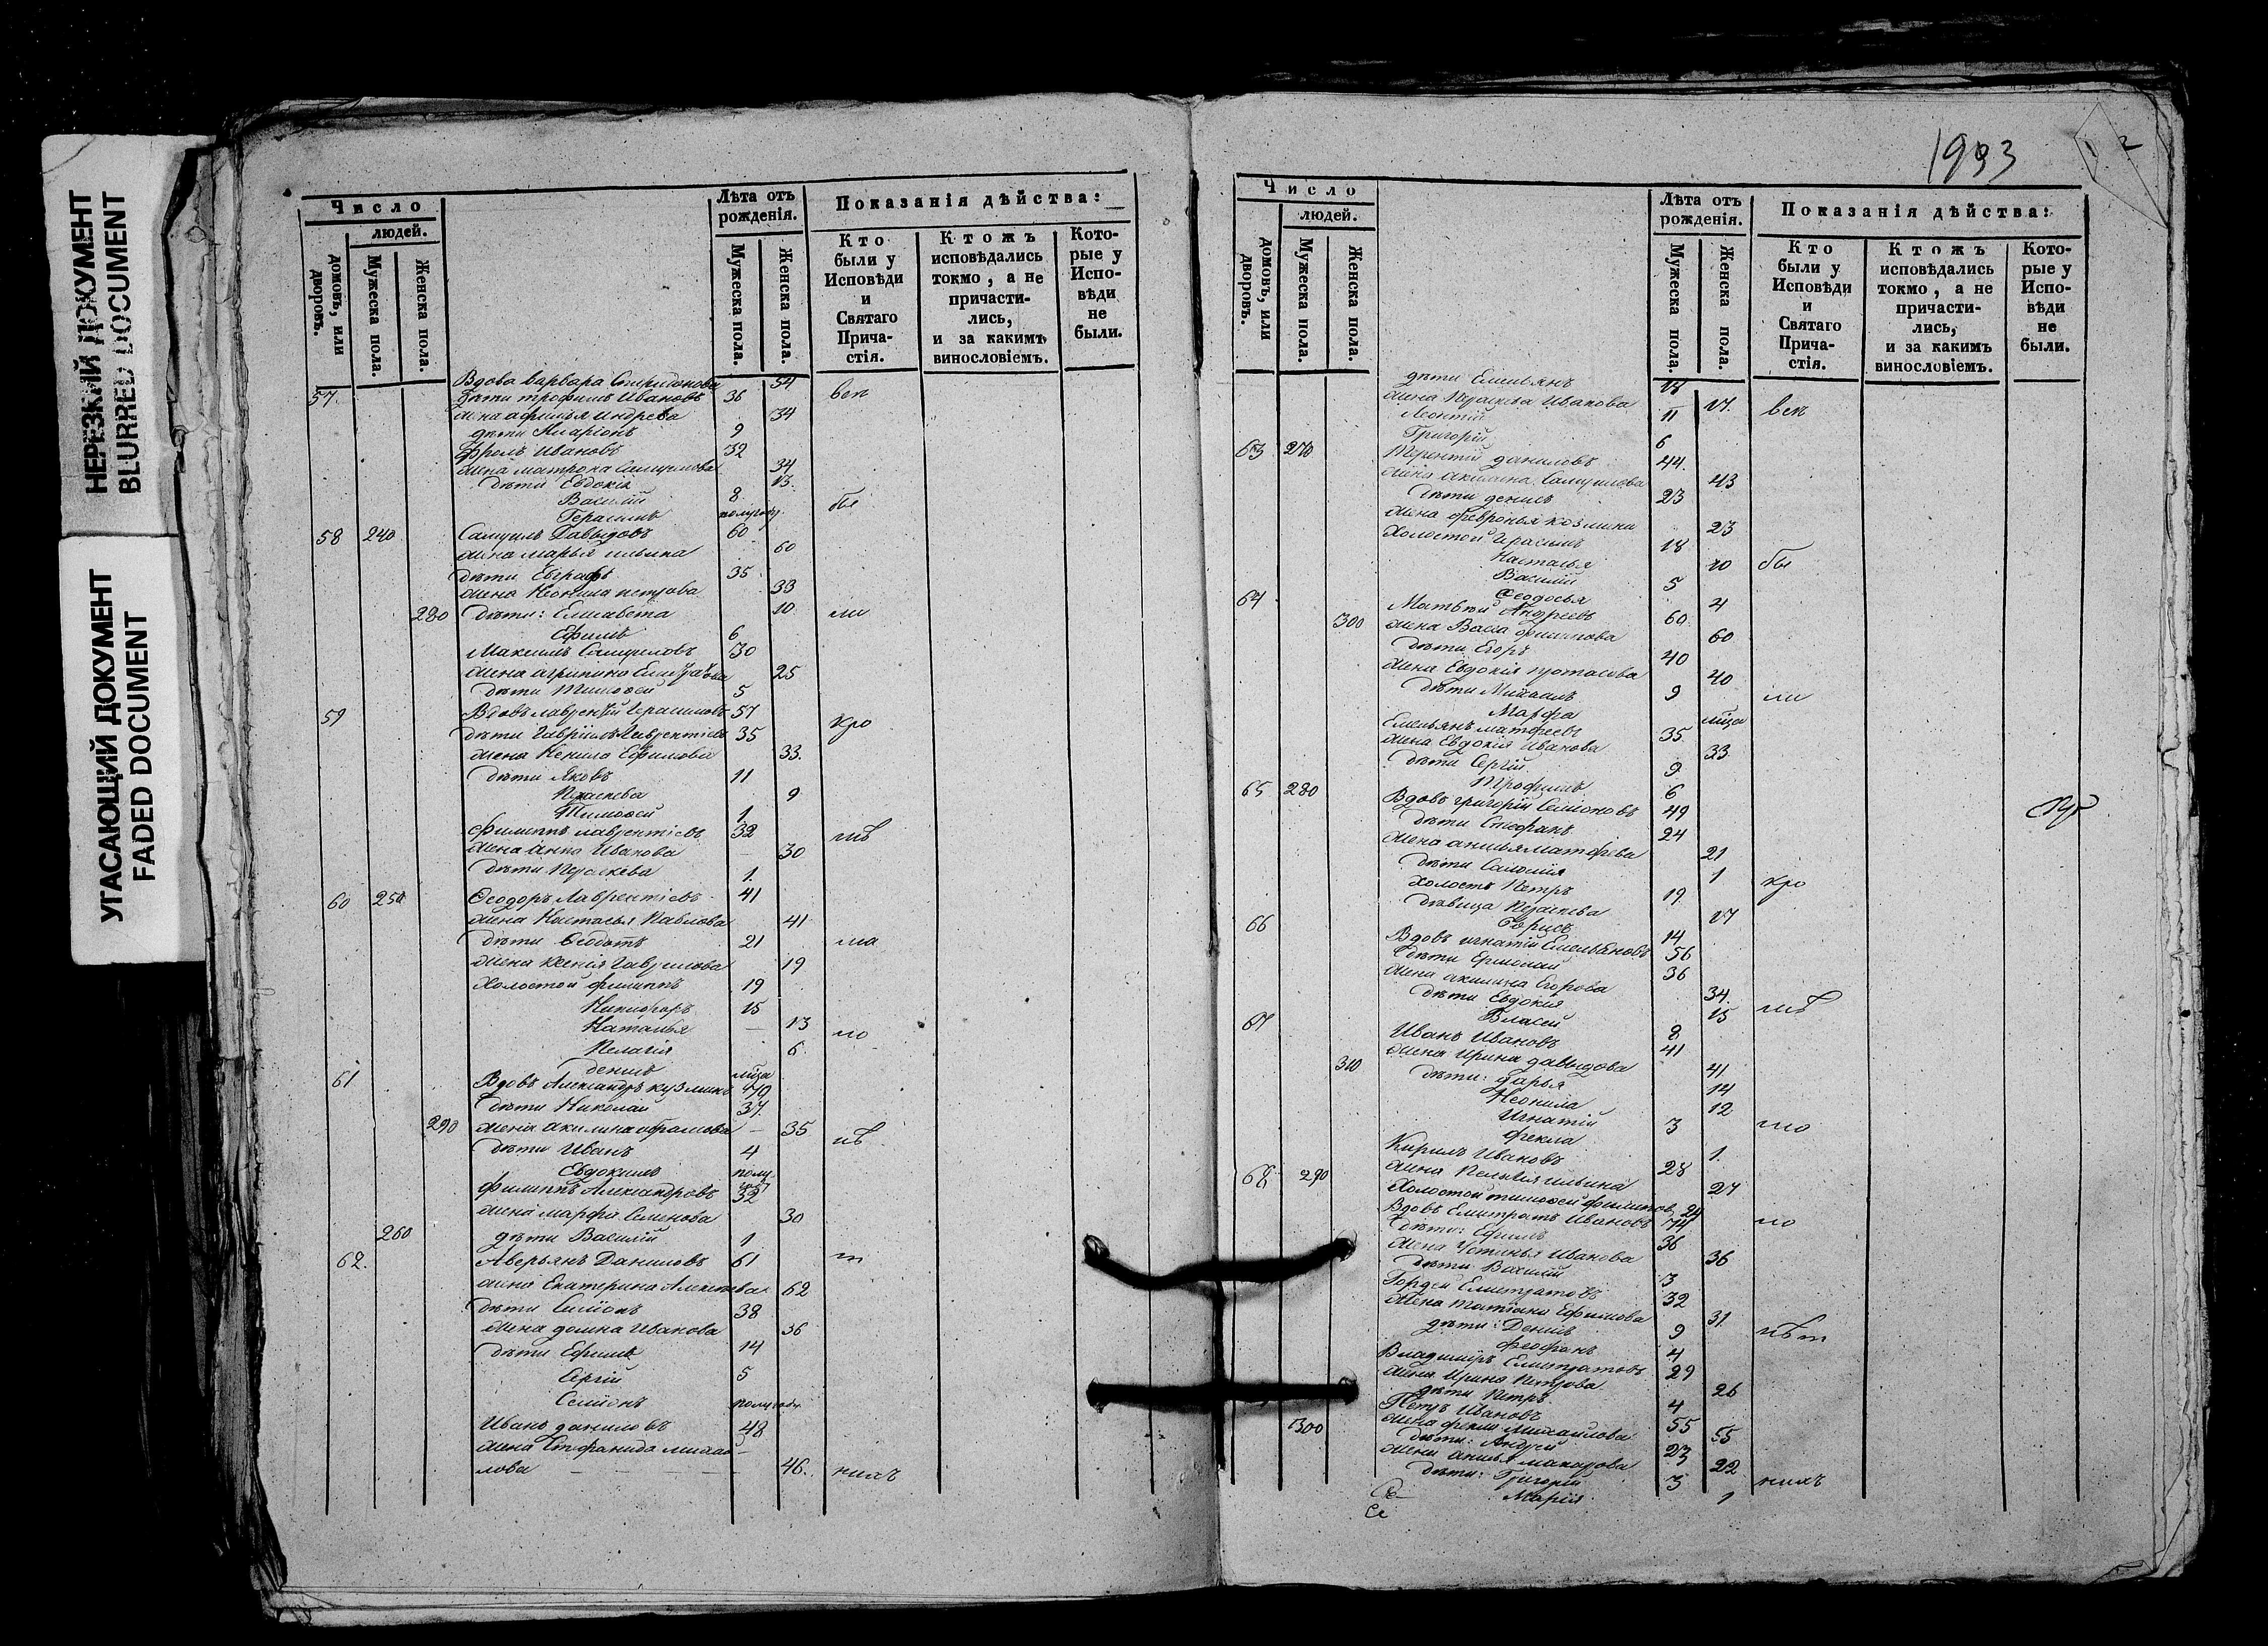 НЕРЕЗКИЙ ДОКУМЕНТ
BLURRED DOCUMENT
УГАСАЮЩИЙ ДОКУМЕНТ
FADED DOCUMENT
Число
людей.
домовъ, или дворовъ.
Мужеска пола.
Женска пола.
Лѣта отъ рожденія.
Мужеска пола.
Женска пола.
Показанія дѣйства:
Кто были у Исповѣди и Святаго Прича-стія.
Ктожъ исповѣдались токмо, а не причасти-лись, и за какимъ винословіемъ.
Кото-рые у Испо-вѣди не были.
Вдова варвара Спиридонова 54
57. дѣти трофимъ Ивановъ 36 вси
жена 34
дѣти Иларіонъ 9
Фролъ Ивановъ 32
жена матрона Самуилова 34
дѣти Евдокія 13
Василій 8
Герасимъ полугоду бы
58 240 Самуилъ Давыдовъ 60
жена марья ильина 60
дѣти Евграфъ 35
жена Неонила петрова 33
280 дѣти: Елисавета 10 ли
Ефимъ 6
Максимъ Самуиловъ 30
жена 25
дѣти Тимофей 5
59 Вдовъ лаврентій Герасимовъ 57 кро
дѣти Гавріилъ Лаврентіевъ 35
жена Ефимова 33.
дѣти Яковъ 11
Параскева 9
Тимофей 1
Филиппъ лаврентіевъ 32 мѣ
жена анна Иванова 30
дѣти Параскева 1.
60 250 Ѳеодоръ Лаврентіевъ 41
жена Настасья Павлова 41
дѣти Ѳедотъ 21 ма
жена ксенія Гаврилова 19
Холостой филиппъ 19
Никифоръ 15
Наталья 13 ло
Пелагія 6
денисъ
61 Вдовъ Александръ кузминъ 70
дѣти Николай 37.
290 жена акилина абрамова 35 лѣ
дѣти Иванъ 4
Евдокимъ полугод
филиппъ Александровъ 32
жена марфа Семенова 30
260 дѣти Василій 1
62. Аверьянъ Даниловъ 61 т
жена Екатерина Алексеева 62
дѣти Симіонъ 38
жена домна Иванова 36
дѣти Ефимъ 14
Сергій 5
Семіонъ полугода
Иванъ даниловъ 48
жена Стефанида михаи
лова 46. нихъ
1993
1 2
Число
людей.
домовъ, или дворовъ.
Мужеска пола.
Женска пола.
Лѣта отъ рожденія.
Мужеска пола.
Женска пола.
Показанія дѣйства:
Кто были у Исповѣди и Святаго Прича-стія.
Ктожъ исповѣдались токмо, а не причасти-лись, и за какимъ винословіемъ.
Кото-рые у Испо-вѣди не были.
дѣти Емельянъ 18
жена Параскева Иванова 17. всѣ
Леонтій 11
Григорій 6
63 270 Терентій даниловъ 44.
жена акилина Самуилова 43
дѣти денисъ 23
жена февронья козмина 23
Холостой Герасимъ 18
Настасья 10 бы
Василій 5
Ѳеодосья 4
64 Матвѣй Андреевъ 60
300 жена Васса филипова 60
дѣти Егоръ 40
жена Евдокія протасова 40
дѣти Михаилъ 9 ли
Марфа
Емельянъ матфеевъ 35
жена Евдокія Иванова 33
дѣти Сергій 9
Трофимъ 6
65 280 Вдовъ григорій Семіоновъ 49
дѣти Стефанъ 24
жена анисья матфеева 21
дѣти Саломія 1
холостъ Петръ 19 кро
дѣвица Параскева 17
Борисъ 14
66 Вдовъ игнатій Емельяновъ 56
дѣти Ермолай 36
жена акилина Егорова 34.
дѣти Евдокія 15 мѣ
Власій 8
67 Иванъ Ивановъ 41
жена Ирина давыдова 41
310 дѣти: дарья 14
Неонила 12
Игнатій 3 ло
фекла 1.
Кирилъ Ивановъ 28
жена Пелагія ильина 27
68 290 Холостой тимофей филипов 24
Вдовъ Елистратъ Ивановъ 74 ло
дѣти: Ефимъ 36
жена Устинья Иванова 36
дѣти Василій 3
Гордей Елистратовъ 32
жена татіана Ефимова 31
дѣти: Денисъ 9 лѣт
феофанъ 4
Владиміръ Елистратовъ 29
жена Ирина Петрова 26
дѣти Петръ 4
Петръ Ивановъ 55
300 жена фекла Михайлова 55
дѣти: Андрей 23
жена анисья макарова 22
дѣти: Григорій 3 нихъ
Марія 1